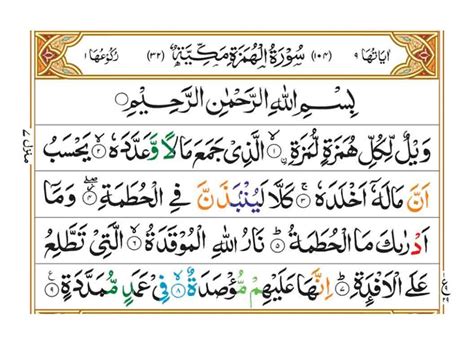 اٰيَاتُهَا ٩ (١٠٤) سُوْرَةُ الْهُمَزَةِ مَكِّيَّةٌ (٣٢) رُكُوْعُهَا ١
بِسْمِ اللهِ الرَّحْمٰنِ الرَّحِيْمِ
وَيْلٌ لِّكُلِّ هُمَزَةٍ لُّمَزَةِ ۙ﴿١﴾ الَّذِيْ جَمَعَ مَالًا وَّعَدَّدَهٗ ۙ﴿٢﴾ يَحْسَبُ
اَنَّ مَالَهٗۤ اَخْلَدَهٗ ۚ﴿٣﴾ كَلَّا لَيُنْۢبَذَنَّ فِي الْحُطَمَةِ ۖ﴿٤﴾ وَمَاۤ
اَدْرٰىكَ مَا الْحُطَمَةُ ؕ﴿٥﴾ نَارُ اللهِ الْمُوْقَدَةُ ۙ﴿٦﴾ الَّتِيْ تَطَّلِعُ
عَلَى الْاَفْـِٕدَةِ ؕ﴿٧﴾ اِنَّهَا عَلَيْهِمْ مُّؤْصَدَةٌ ۙ﴿٨﴾ فِيْ عَمَدٍ مُّمَدَّدَةٍ ﴿٩﴾
منزل ٧